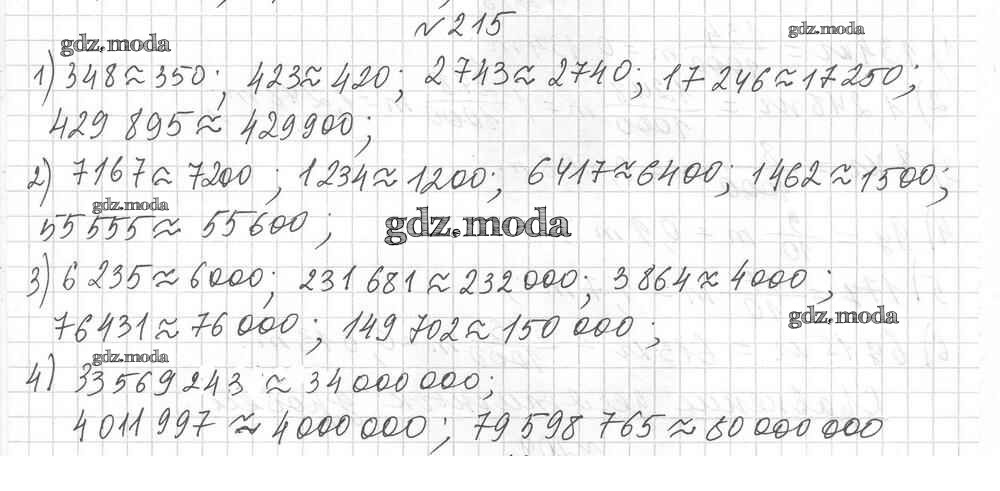 №215
gdz.moda gdz.moda
1) 348≈350; 423≈420; 2743≈2740; 17246≈17250;
429 895≈ 429900;
2) 7167≈7200; 1234≈1200; 6417≈6400; 1462≈1500;
gdz.moda
55555≈ 55600; gdz.moda
3) 6235≈6000; 231 681≈232000; 3864≈4000;
76431≈76000; 149702≈150 000; gdz.moda
gdz.moda
4) 33569243 ≈34000000;
4011997≈4000000; 79598 765≈80000000